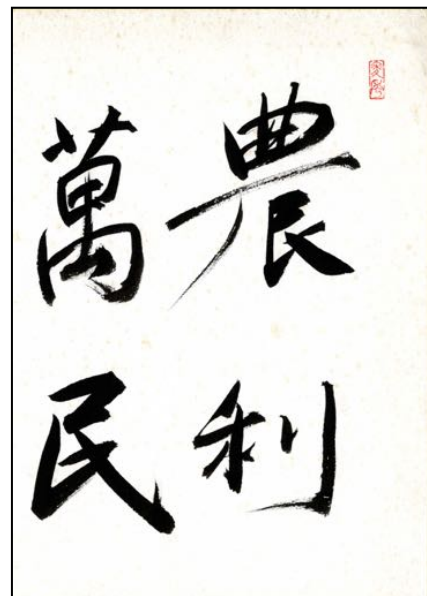 農利
萬民